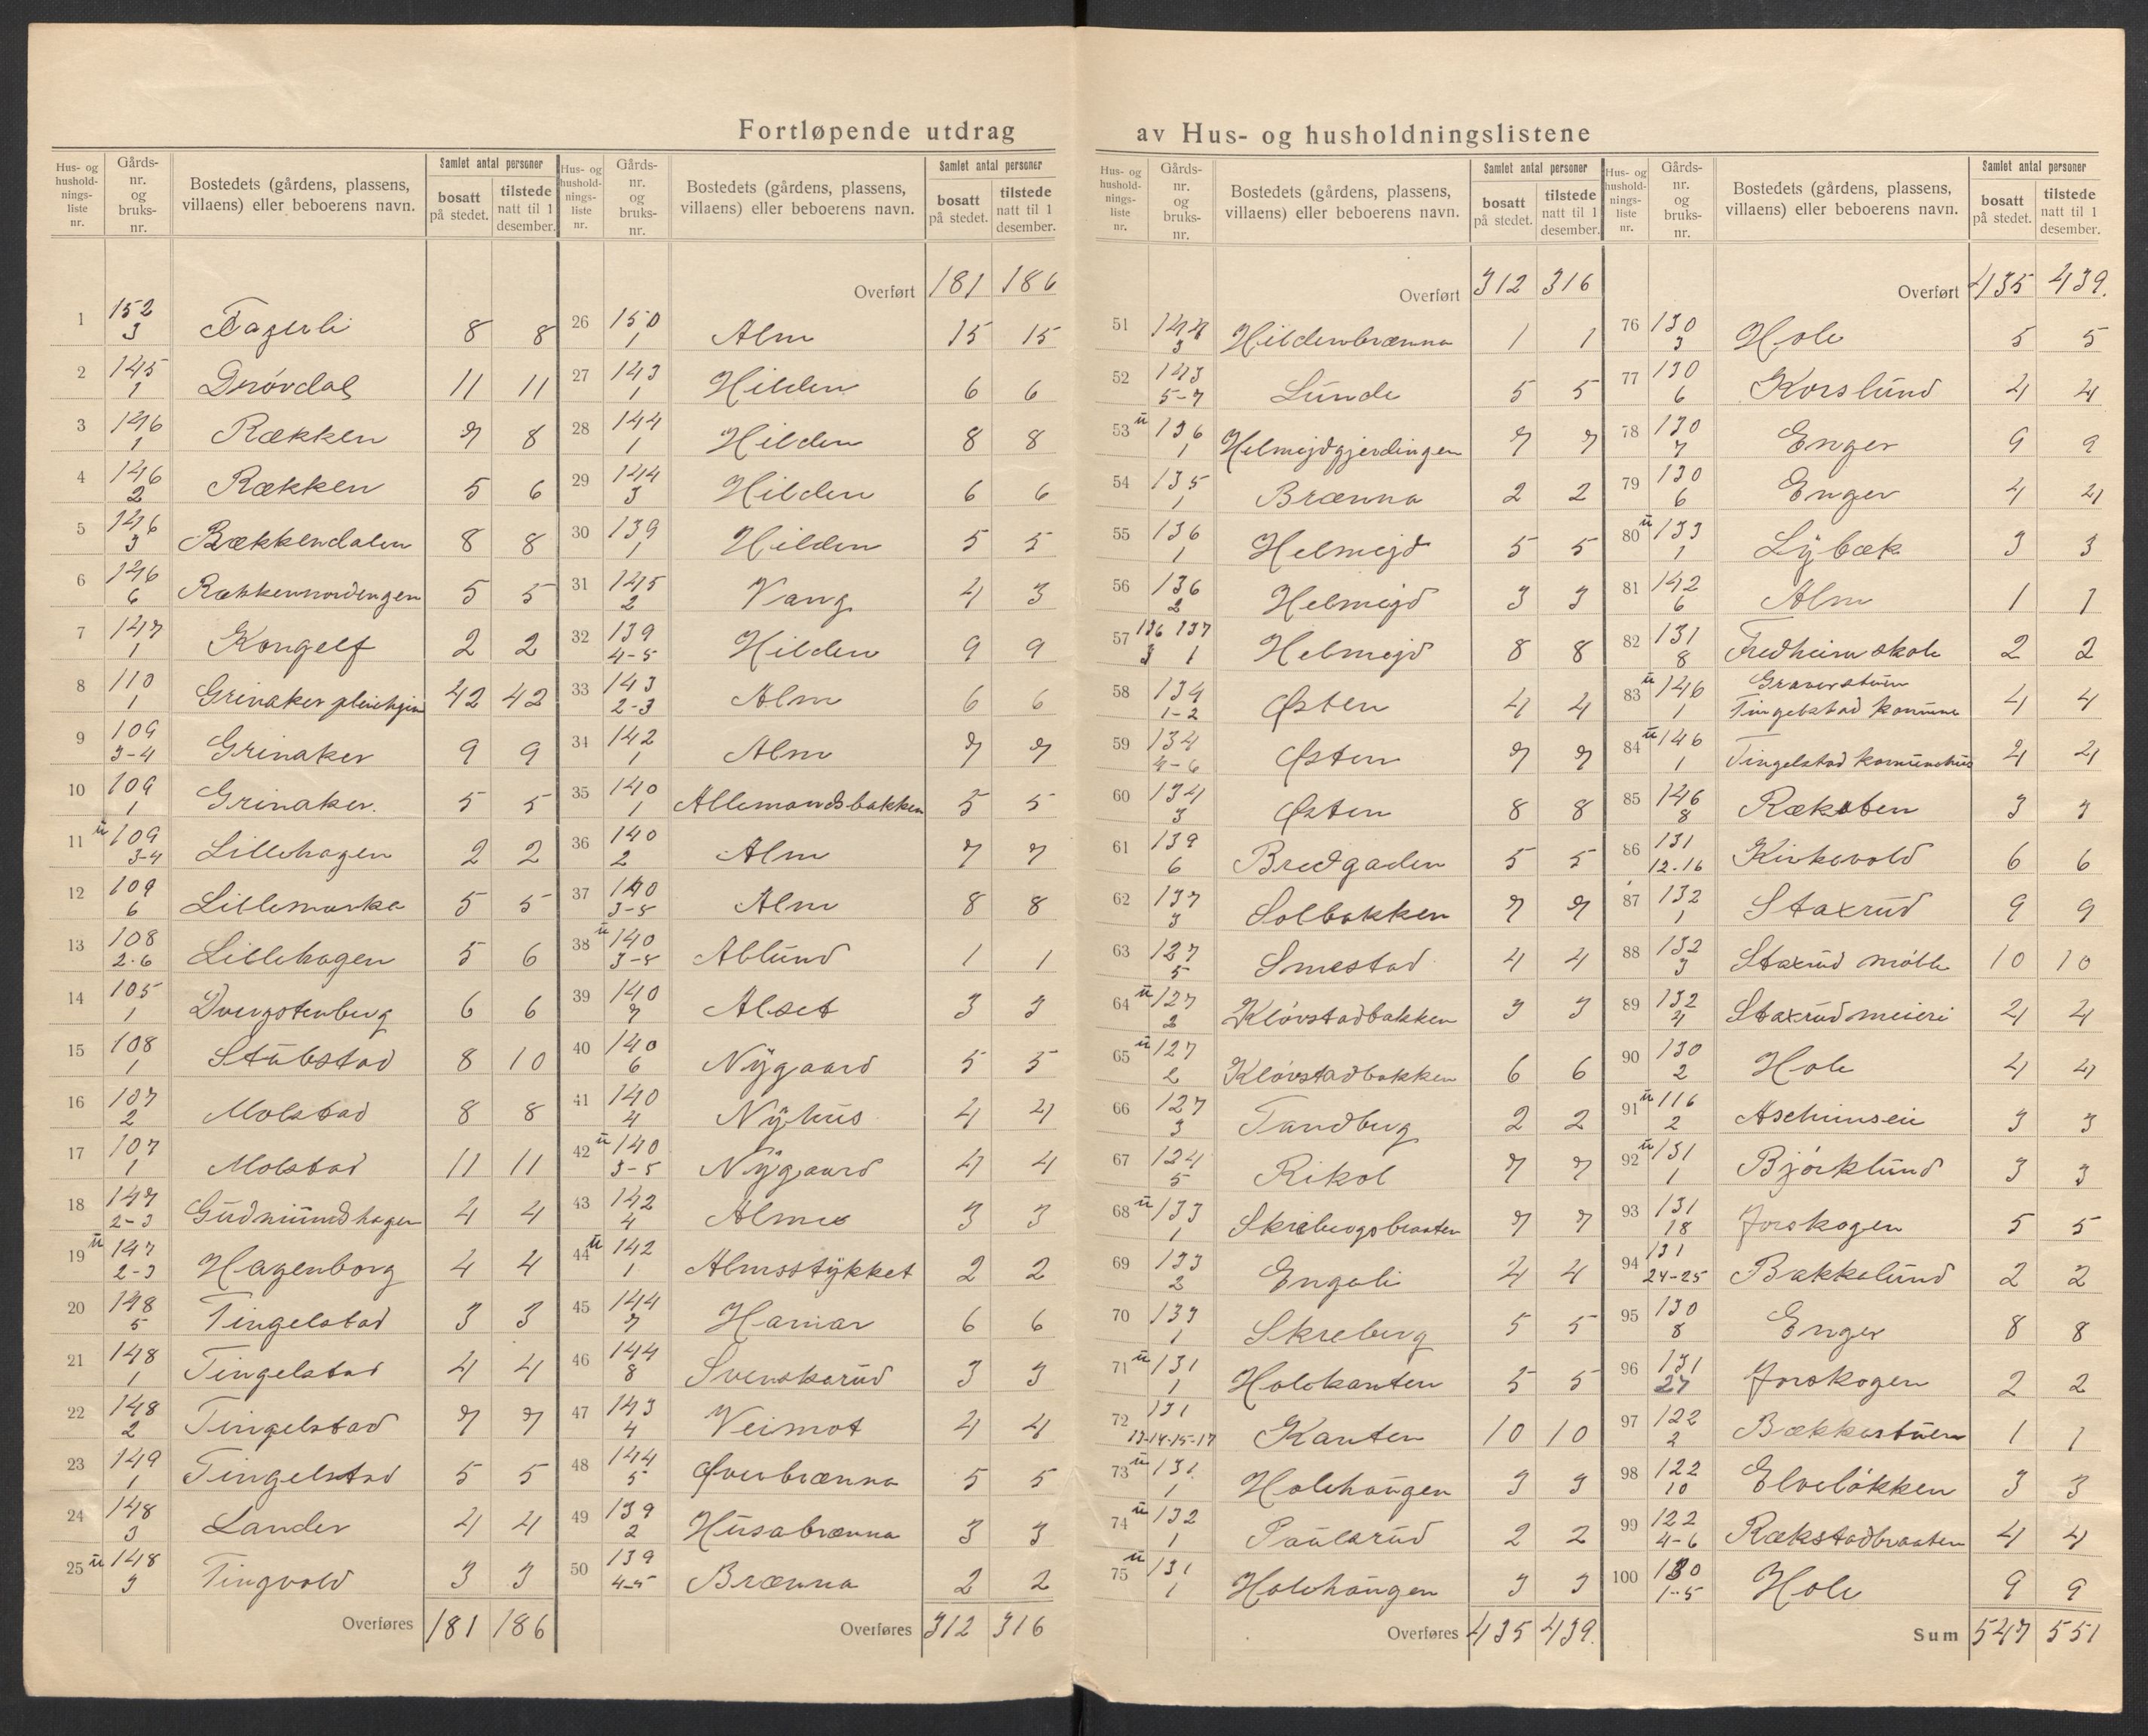 Fortløpende utdrag av Hus- og husholdningslistene
Hus- og hushold-nings-liste nr. | Gårds-nr. og bruks-nr. | Bostedets (gårdens, plassens, villaens) eller beboerens navn. | Samlet antal personer bosatt på stedet. | tilstede natt til 1 desember.
1 | 152 3 | Fagerli | 8 | 8
2 | 145 1 | Drøvdal | 11 | 11
3 | 146 1 | Rækken | 7 | 8
4 | 146 2 | Rækken | 5 | 6
5 | 146 3 | Rækkendalen | 8 | 8
6 | 146 6 | Rækkennordengen | 5 | 5
7 | 147 1 | Kongelf | 2 | 2
8 | 110 1 | Grinaker pleiehjem | 42 | 42
9 | 109 3-4 | Grinaker | 9 | 9
10 | 109 1 | Grinaker. | 5 | 5
11 u | 109 3-4 | Lillehagen | 2 | 2
12 | 109 6 | Lillemarka | 5 | 5
13 | 108 2.6 | Lillehagen | 5 | 6
14 | 105 1 | Dvergstenberg | 6 | 6
15 | 108 1 | Stubstad | 8 | 10
16 | 107 2 | Molstad | 8 | 8
17 | 107 1 | Molstad | 11 | 11
18 | 147 2-3 | Gudmundhagen | 4 | 4
19 u | 147 2-3 | Hagenborg | 4 | 4
20 | 148 5 | Tingelstad | 3 | 3
21 | 148 1 | Tingelstad | 4 | 4
22 | 148 2 | Tingelstad | 7 | 7
23 | 149 1 | Tingelstad | 5 | 5
24 | 148 3 | Lander | 4 | 4
25 u | 148 3 | Tingvold | 3 | 3
Overføres | 181 | 186
Hus- og hushold-nings-liste nr. | Gårds-nr. og bruks-nr. | Bostedets (gårdens, plassens, villaens) eller beboerens navn. | Samlet antal personer bosatt på stedet. | tilstede natt til 1 desember.
Overført | 181 | 186
26 | 150 1 | Alm | 15 | 15
27 | 143 1 | Hilden | 6 | 6
28 | 144 1 | Hilden | 8 | 8
29 | 144 3 | Hilden | 6 | 6
30 | 139 1 | Hilden | 5 | 5
31 | 145 2 | Vang | 4 | 3
32 | 139 4-5 | Hilden | 9 | 9
33 | 143 2-3 | Alm | 6 | 6
34 | 142 1 | Alm | 7 | 7
35 | 140 1 | Allemandsbakken | 5 | 5
36 | 140 2 | Alm | 7 | 7
37 | 140 3-5 | Alm | 8 | 8
38 u | 140 3-5 | Ablund | 1 | 1
39 | 140 7 | Alset | 3 | 3
40 | 140 6 | Nygaard | 5 | 5
41 | 140 4 | Nyhus | 4 | 4
42 u | 140 3-5 | Nygaard | 4 | 4
43 | 142 4 | Almeo | 3 | 3
44 u | 142 1 | Almsstykket | 2 | 2
45 | 144 7 | Hamar | 6 | 6
46 | 144 8 | Svenskerud | 3 | 3
47 | 143 4 | Veimot | 4 | 4
48 | 144 5 | Øverbrænna | 5 | 5
49 | 139 2 | Husabrænna | 3 | 3
50 | 139 4-5 | Brænna | 2 | 2
Overføres | 312 | 316
Hus- og hushold-nings-liste nr. | Gårds-nr. og bruks-nr. | Bostedets (gårdens, plassens, villaens) eller beboerens navn. | Samlet antal personer bosatt på stedet. | tilstede natt til 1 desember.
Overført | 312 | 316
51 | 144 3 | Hildenbrænna | 1 | 1
52 | 143 5-7 | Lunde | 5 | 5
53 u | 136 1 | Helmejdgjerdingen | 7 | 7
54 | 135 1 | Brænna | 2 | 2
55 | 136 1 | Helmejd | 5 | 5
56 | 136 2 | Helmejd | 3 | 3
57 | 136 137 3 1 | Helmejd | 8 | 8
58 | 134 1-2 | Østen | 4 | 4
59 | 134 4-6 | Østen | 7 | 7
60 | 134 3 | Østen | 8 | 8
61 | 139 6 | Bredgaden | 5 | 5
62 | 137 3 | Solbakken | 7 | 7
63 | 127 5 | Smestad | 4 | 4
64 u | 127 2 | Kløvstadbakken | 3 | 3
65 u | 127 2 | Kløvstadbakken | 6 | 6
66 | 127 3 | Tandberg | 2 | 2
67 | 124 5 | Rikol | 7 | 7
68 u | 133 1 | Skrebergsbraaten | 7 | 7
69 | 133 2 | Engeli | 4 | 4
70 | 133 1 | Skreberg | 5 | 5
71 u | 131 1 | Holekanten | 5 | 5
72 | 131 13-14-15-17 | Kanten | 10 | 10
73 u | 131 1 | Holehaugen | 3 | 3
74 u | 132 1 | Paulsrud | 2 | 2
75 u | 131 1 | Holehaugen | 3 | 3
Overføres | 435 | 439.
Hus- og hushold-nings-liste nr. | Gårds-nr. og bruks-nr. | Bostedets (gårdens, plassens, villaens) eller beboerens navn. | Samlet antal personer bosatt på stedet. | tilstede natt til 1 desember.
Overført | 435 | 439.
76 | 130 3 | Hole | 5 | 5
77 | 130 6 | Korslund | 4 | 4
78 | 130 7 | Enger | 9 | 9
79 | 130 6 | Enger | 4 | 4
80 u | 133 1 | Lybæk | 3 | 3
81 | 142 6 | Alm | 1 | 1
82 | 131 8 | Fredheim skole | 2 | 2
83 u | 146 1 | Graverstuen Tingelstad komune | 4 | 4
84 u | 146 1 | Tingelstad komunehus | 4 | 4
85 | 146 8 | Ræksten | 3 | 3
86 | 131 12.16 | Kirkevold | 6 | 6
87 | 132 1 | Staxrud | 9 | 9
88 | 132 3 | Staxrud mølle | 10 | 10
89 | 132 4 | Staxrud meieri | 4 | 4
90 | 130 2 | Hole | 4 | 4
91 u | 116 2 | Aschimseie | 3 | 3
92 u | 131 1 | Bjørklund | 3 | 3
93 | 131 18 | Joroskogen | 5 | 5
94 | 131 24-25 | Bakkelund | 2 | 2
95 | 130 8 | Enger | 8 | 8
96 | 131 27 | Joroskogen | 2 | 2
97 | 122 2 | Bækkestuen | 1 | 1
98 | 122 10 | Elveløkken | 3 | 3
99 | 122 4-6 | Rækstadbraaten | 4 | 4
100 | 130 1-5 | Hole | 9 | 9
Sum | 547 | 551